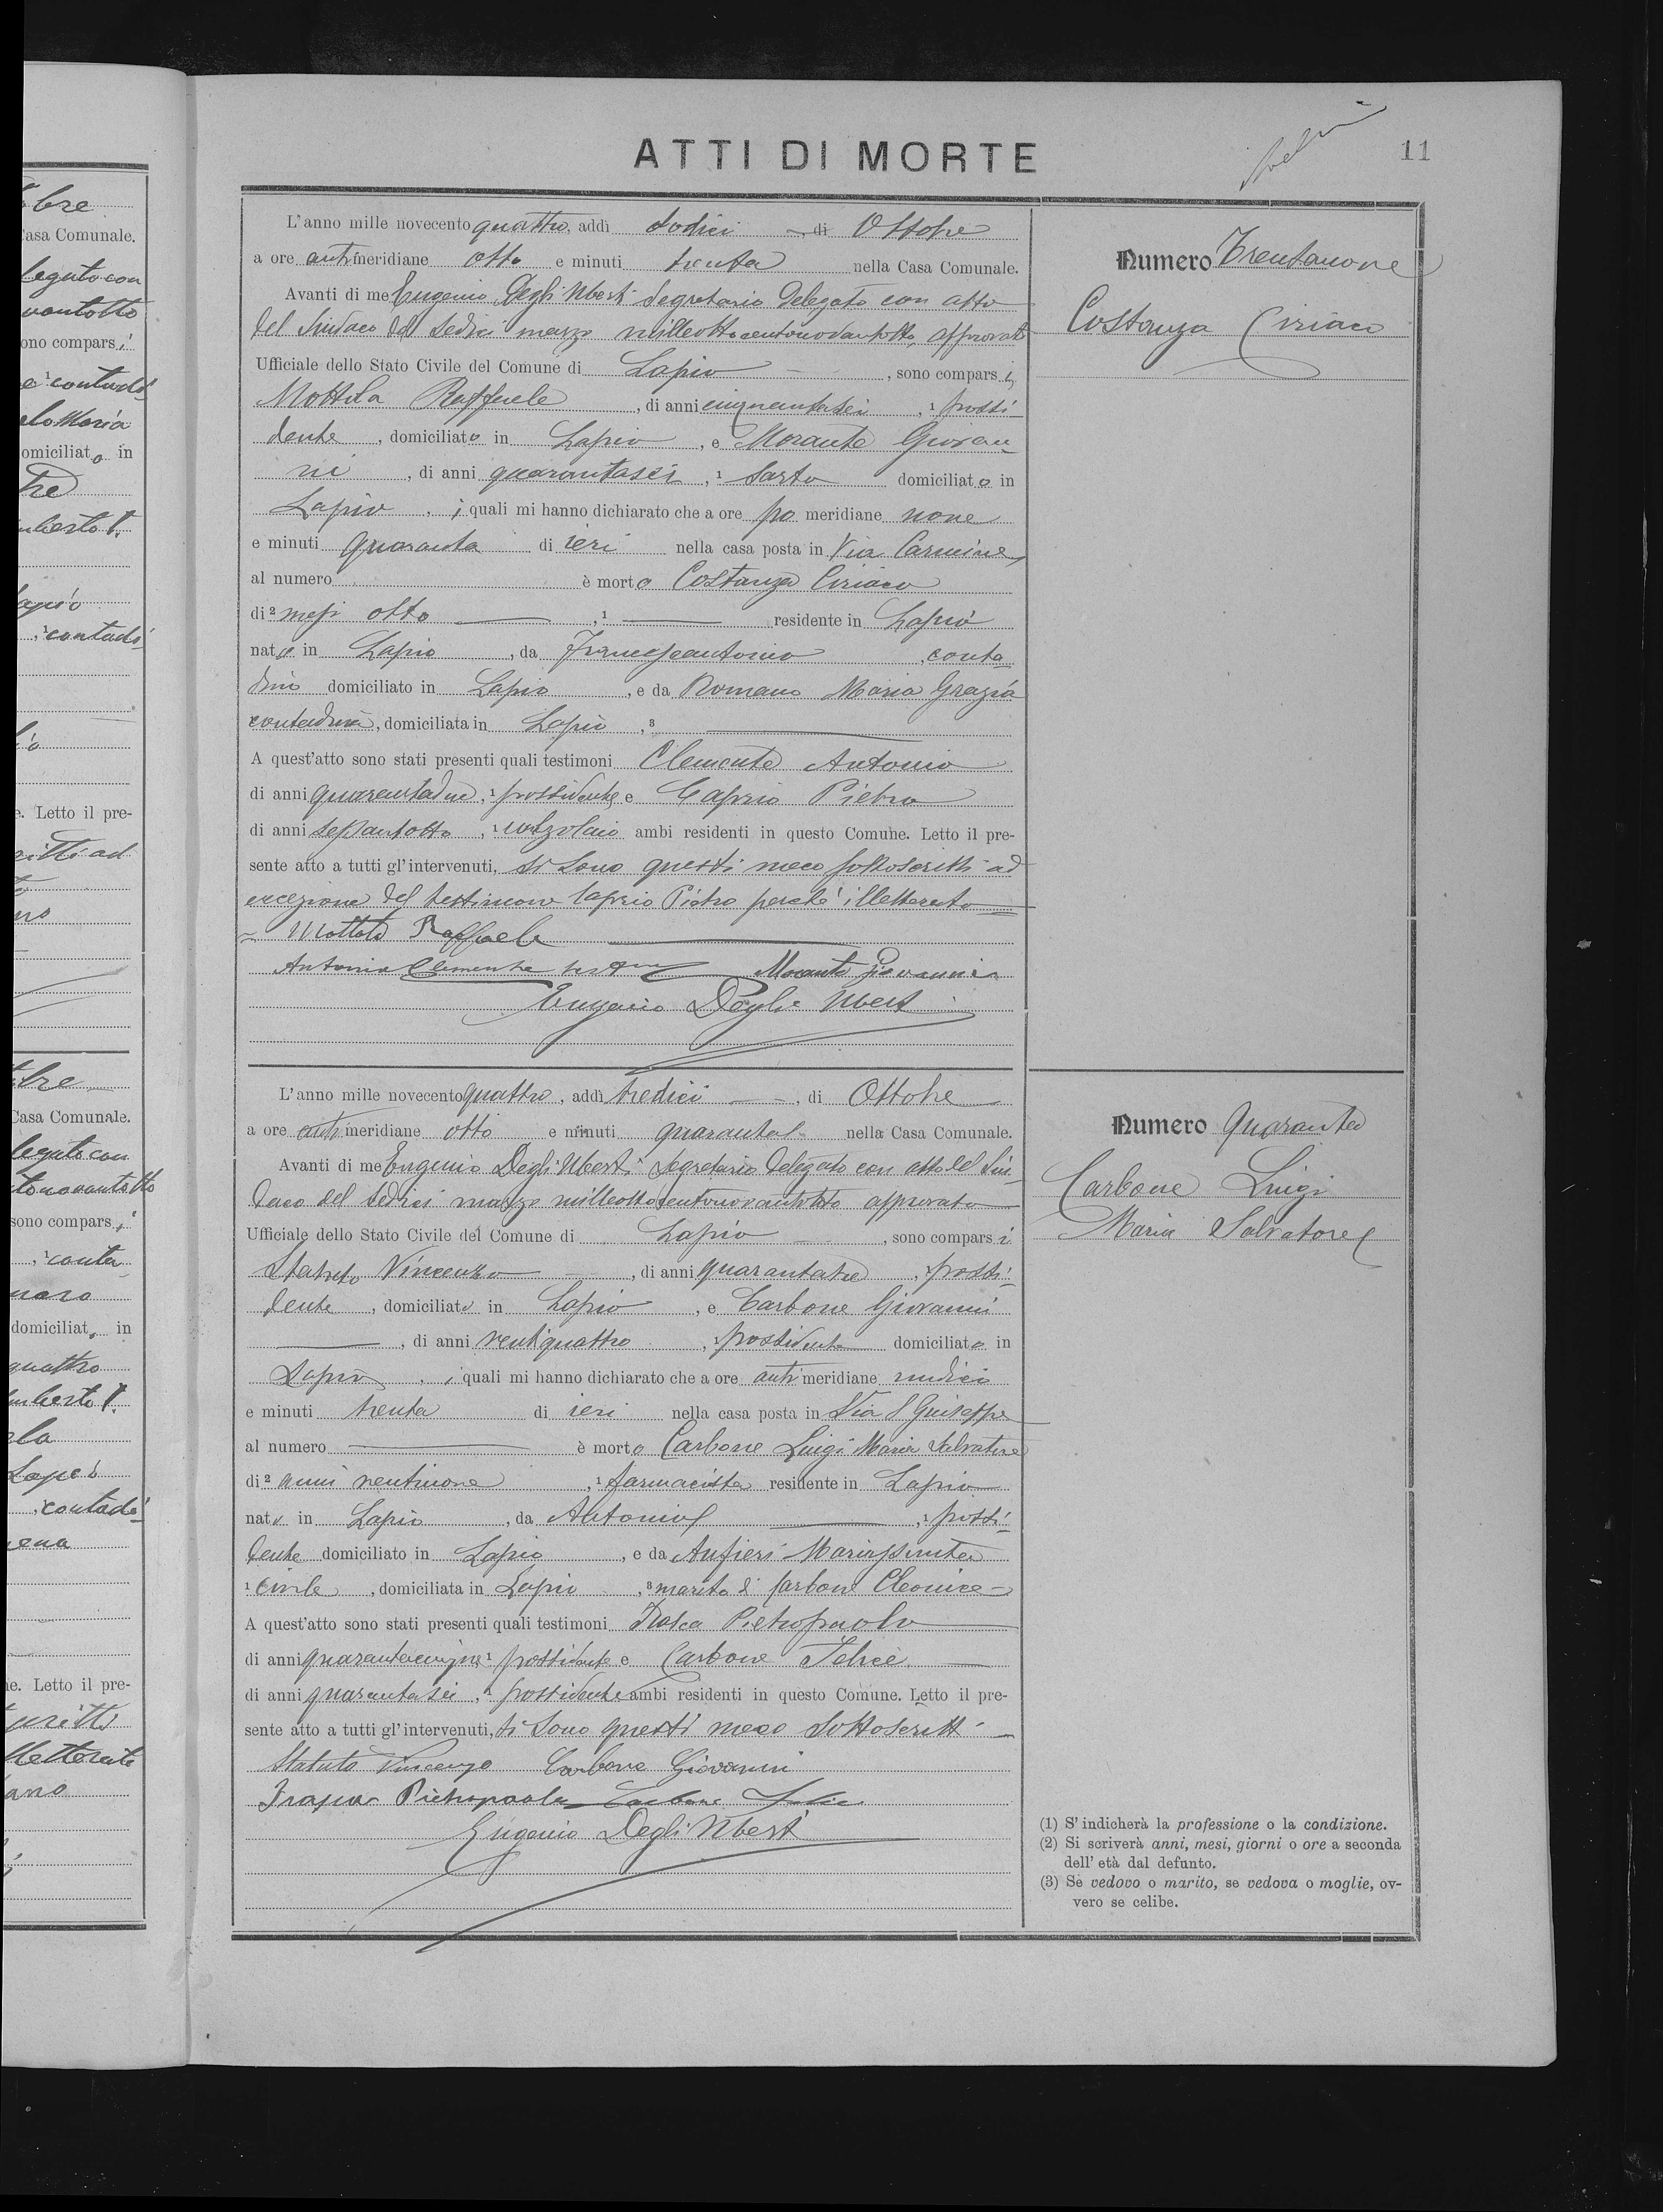 bre
Casa Comunale.
legato con
vantotto
ono compars i
contad
Maria
omiciliato in
tre
mberto I.
contadi
e. Letto il pre-
ritti ad
bre
Casa Comunale.
legato con
tonovantotto
sono compars i
conta
naro
domiciliato in
quattro
mberto I.
contadi
ena
ne. Letto il pre-
critti
lletterato
ATTI DI MORTE
11
L'anno mille novecento quattro, addì dodici, di Ottobre
a ore antimeridiane otto e minuti trenta nella Casa Comunale.
Avanti di me Eugenio Degli Uberti Segretario Delegato con atto
del Sindaco del sedici marzo milleottocentonovantotto, approvato
Ufficiale dello Stato Civile del Comune di Lapio, sono comparsi
Mottola Raffaele, di anni cinquantasei, 1 possi-
dente, domiciliato in Lapio, e Morante Giovan-
ni, di anni quarantasei, 1 sarto domiciliato in
Lapio, i quali mi hanno dichiarato che a ore po meridiane nove
e minuti quaranta di ieri nella casa posta in Via Carmine,
al numero è morto Costanza Ciriaco
di 2 mesi otto, 1 residente in Lapio
nato in Lapio, da Francescantonio, conta-
dino domiciliato in Lapio, e da Romano Maria Grazia
contadina, domiciliata in Lapio, 3
A quest'atto sono stati presenti quali testimoni Clemente Antonio
di anni quarantadue, 1 possidente e Caprio Pietro
di anni settantotto, 1 calzolaio ambi residenti in questo Comune. Letto il pre-
sente atto a tutti gl'intervenuti, si sono questi meco sottoscritti ad
eccezione del testimone Caprio Pietro perchè illetterato
Mottola Raffaele
Antonio Clemente Morante Giovanni
Eugenio Degli Uberti
Numero Trentanove
Costanza Ciriaco
L'anno mille novecento quattro, addì tredici, di Ottobre
a ore antimeridiane otto e minuti quaranta nella Casa Comunale.
Avanti di me Eugenio Degli Uberti Segretario Delegato con atto del Sin-
daco del sedici marzo milleottocentonovantotto approvato
Ufficiale dello Stato Civile del Comune di Lapio, sono comparsi
Statuto Vincenzo, di anni quarantatre, 1 possi-
dente, domiciliato in Lapio, e Carbone Giovanni
, di anni ventiquattro, 1 possidente domiciliato in
Lapio, i quali mi hanno dichiarato che a ore antimeridiane undici
e minuti trenta di ieri nella casa posta in Via S Giuseppe
al numero è morto Carbone Luigi Maria Salvatore
di 2 anni ventinove, 1 farmacista residente in Lapio
nato in Lapio, da Antonio, 1 possi-
dente domiciliato in Lapio, e da Anfieri Mariassunta
1 civile, domiciliata in Lapio, 3 marito di Carbone Cleonice
A quest'atto sono stati presenti quali testimoni Pietropaolo
di anni quarantacinque 1 possidente e Carbone Felice
di anni quarantasei, 1 possidente ambi residenti in questo Comune. Letto il pre-
sente atto a tutti gl'intervenuti, si sono questi meco sottoscritti
Statuto Vincenzo Carbone Giovanni
Pietropaolo Carbone Felice
Eugenio Degli Uberti
Numero Quaranta
Carbone Luigi
Maria Salvatore
(1) S'indicherà la professione o la condizione.
(2) Si scriverà anni, mesi, giorni o ore a seconda
dell'età dal defunto.
(3) Se vedovo o marito, se vedova o moglie, ov-
vero se celibe.